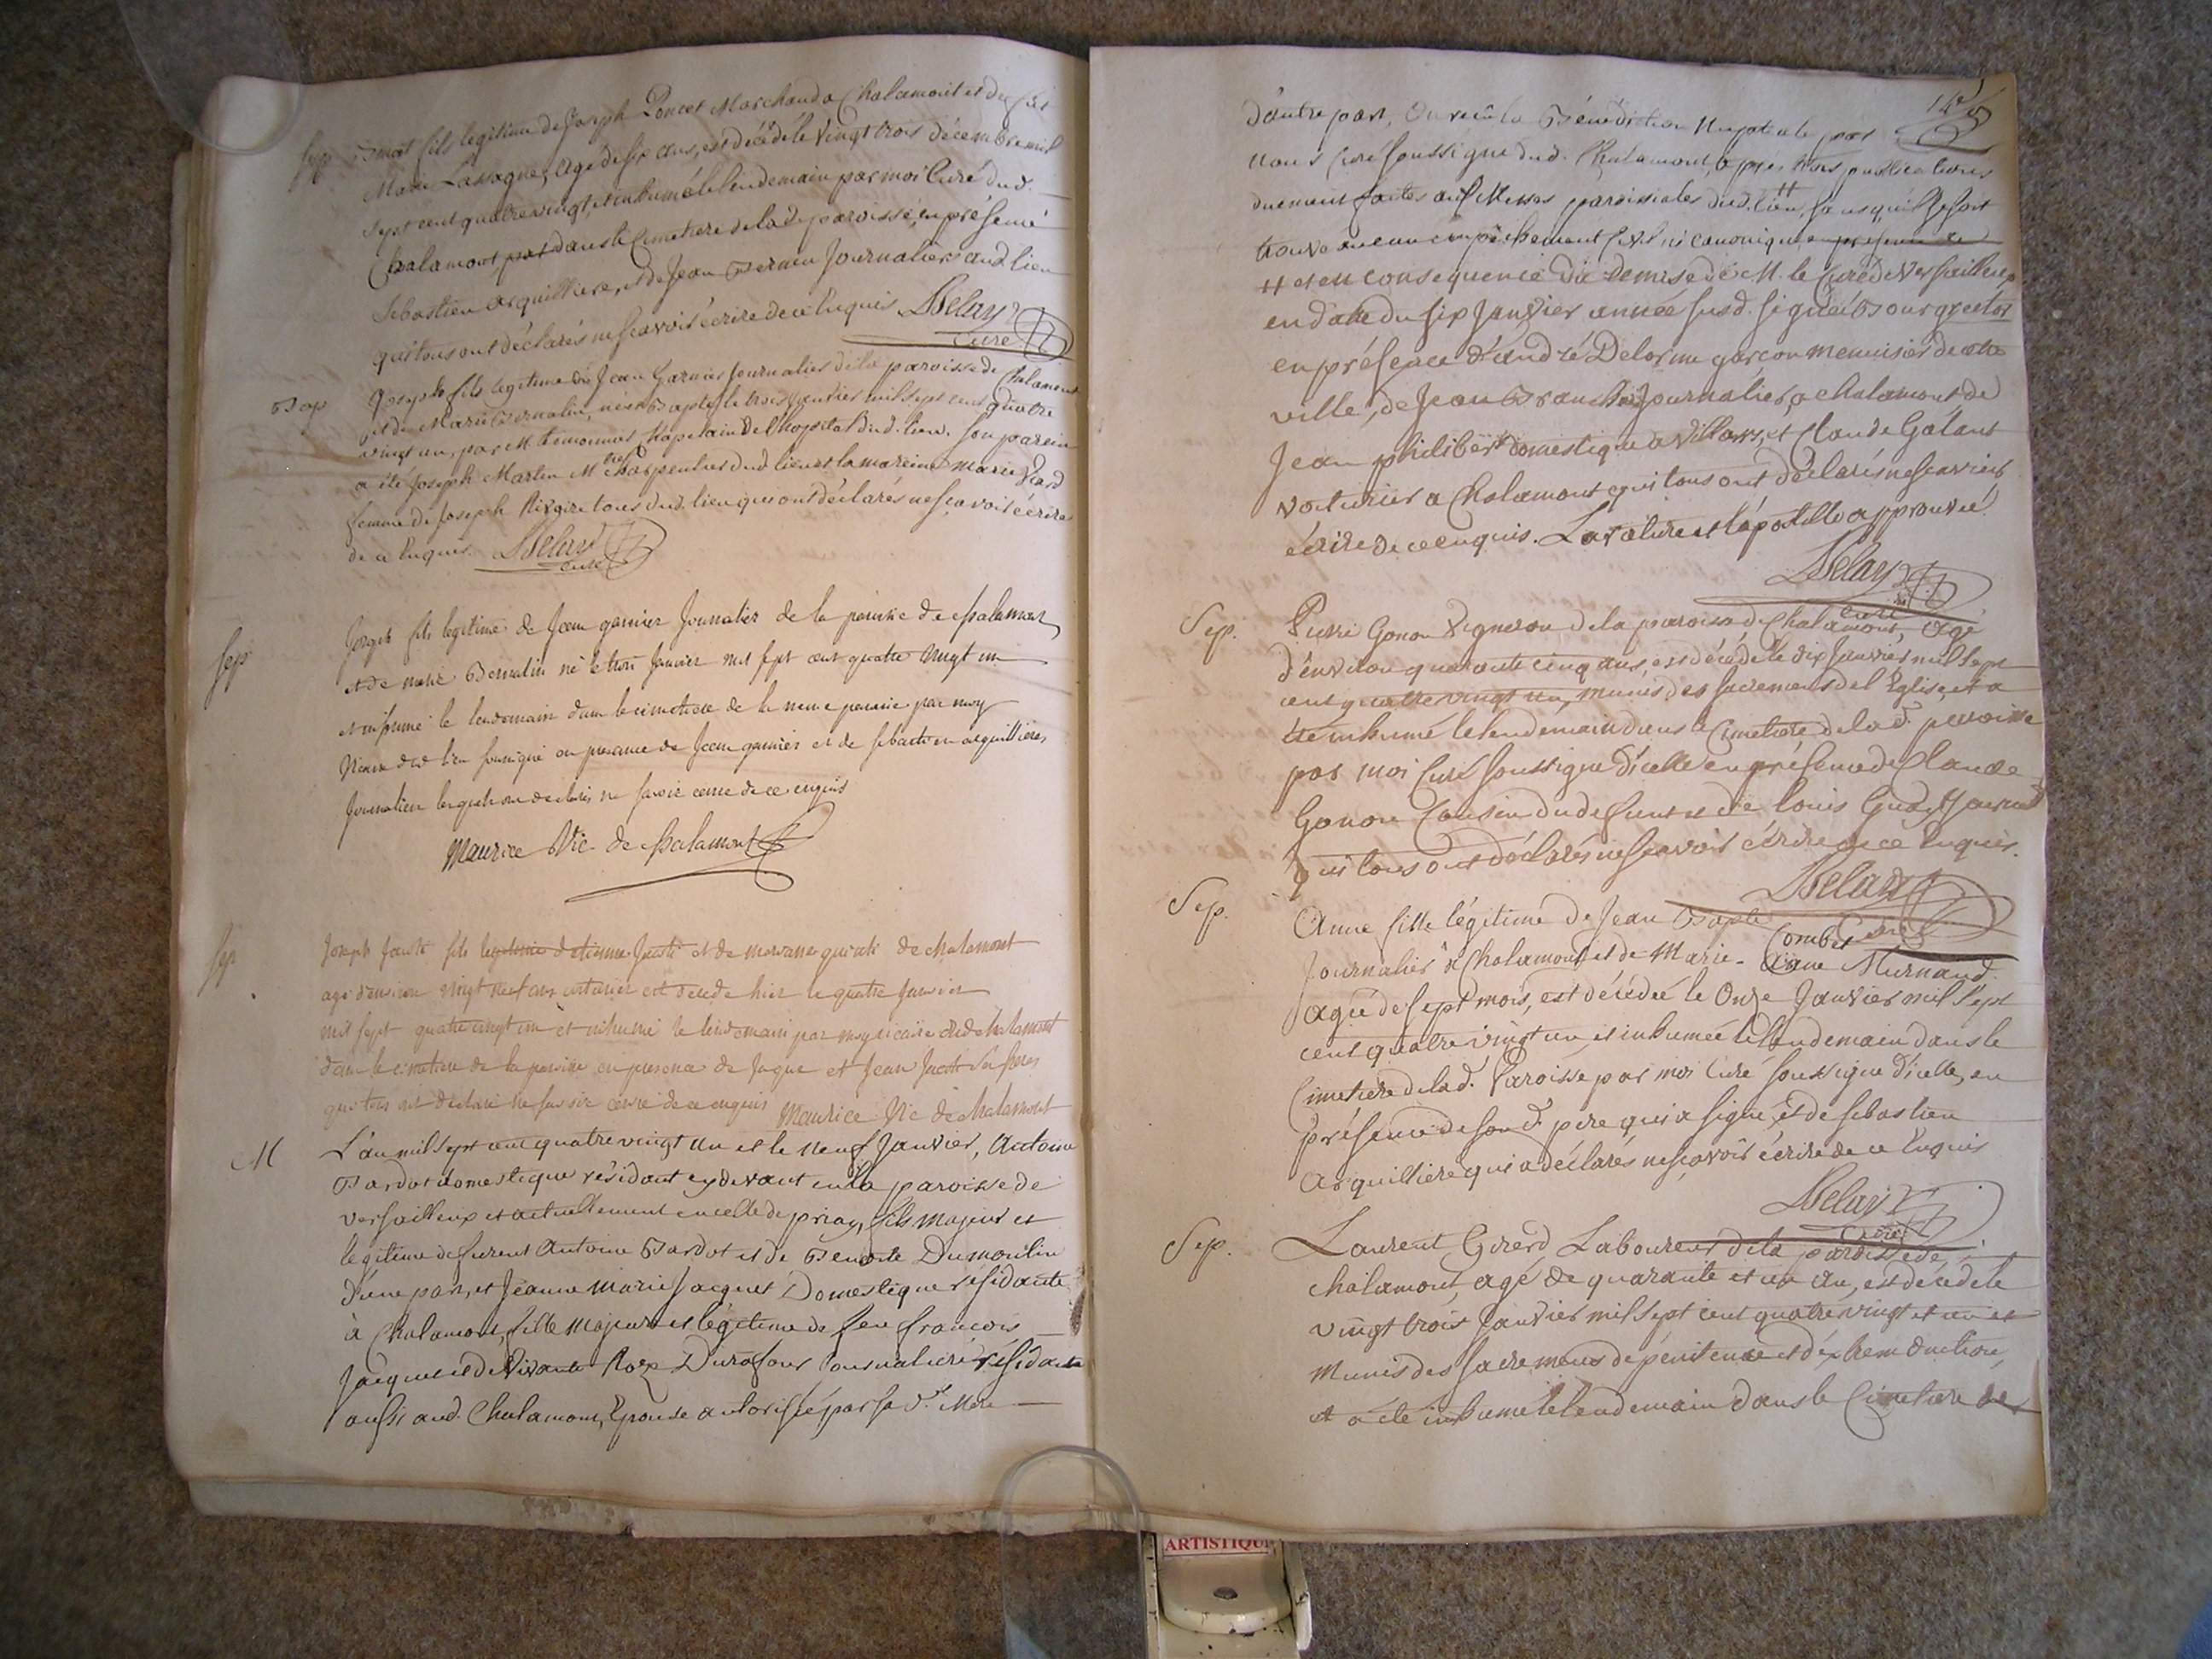 Sep. Benoit fils legitime de Joseph Poncet Marchand a Chalamont et de
Marie Lassagne, agé de six ans, est décédé le vingt trois décembre mil
sept cent quatre vingt, et inhumé le lendemain par moi Curé dud.
Chalamont, dans le Cimetiere de lad. paroisse, en présence
Sebastien arquilliere, et de Jean Journaliers aud. lieu
qui tous ont déclarés ne scavoir écrire de ce Enquis Delay
Curé
Bap Joseph fils legitime de Jean Garnier Journalier de la paroisse de Chalamont
et de Marie Bernalin, né et Baptisé le trois Janvier mil sept cent quatre
vingt un, par M. chapelain de l'hopital dud. lieu. son parein
a été Joseph Martin Mtre charpentier dud. lieu et la mareine marie
femme de Joseph tous dud. lieu qui ont déclarés ne scavoir écrire
de ce Enquis. Delay
curé
Sep Joseph fils legitime de Jean garnier Journalier de la paroisse de chalamont
et de marie Bernalin né le trois Janvier mil sept cent quatre vingt un
et inhumé le lendemain dans le cimetiere de la meme paroisse par moy
Vicaire dud lieu soussigné en presence de Jean garnier et de sebastien arquilliere
Journaliers lesquels ont declarés ne savoir ecrire de ce enquis
Maurice Vic de chalamont
Sep Joseph fils legitime d'etienne et de de chalamont
agé d'environ vingt ans est decedé hier le quatre Janvier
mil sept quatre vingt un et inhumé le lendemain par moy vicaire de chalamont
dans le cimetiere de la paroisse en presence de Jaque et Jean ses freres
qui tous ont declaré ne savoir ecrire de ce enquis Maurice Vic de chalamont
M L'an mil sept cent quatre vingt un et le neuf Janvier, Antoine
Bardot domestique résidant cy devant en la paroisse de
versailleux et actuellement en celle de priay, fils majeur et
legitime de furent Antoine Bardot et de Benoite Dumoulin
d'une part, et Jeanne Marie Jacquet Domestique résidante
à Chalamont, fille Majeure et légitime de feu francois
Jacquet et de vivante Roze Durafour Journaliere résidante
aussi aud. Chalamont, Epouse autorisée par sa d.e Mere
14
d'autre part, Ont recu la Bénédiction Nuptiale par
nous Curé soussigné dud. Chalamont, apres trois publications
duement faites aux Messes paroissiales dud. lieu, # sans qu'il se soit
trouvé aucun empêchement civil ni canonique, en presence de
# et en consequence du demise de M. le Curé de Versailleux,
en date du six Janvier année susd. signé
en présence d'andré Delorme garçon menuisier de cette
ville, de Jean Journalier, a chalamont de
Jean philibert domestique a villars, et Claude Galant
voiturier a Chalamont qui tous ont déclarés ne scavoir
écrire de ce enquis. La rature et l'apostille approuvée
Delay
curé
Sep. Pierre Gonon Vigneron de la paroisse de Chalamont, agé
d'environ quarante cinq ans, est décédé le dix Janvier mil sept
cent quatre vingt un, munis des sacremens de l'Eglise, et a
été inhumé le lendemain dans le Cimetiere de lad. paroisse
par moi Curé soussigné d'icelle en présence de Claude
Gonon Cousin du defunt et de louis
qui tous ont déclarés ne scavoir écrire de ce Enquis.
Delay
Curé
Sep. Anne fille légitime de Jean Baptiste Combet
Journalier à Chalamont et de Marie-Anne Murnand
agée de sept mois, est décédée le Onze Janvier mil sept
cent quatre vingt un, et inhumée le lendemain dans le
Cimetiere de lad. Paroisse par moi Curé soussigné d'icelle, en
présence de son d. pere qui a signé, et de sebastien
arquilliere qui a déclarés ne scavoir écrire de ce Enquis
Delay
curé
Sep. Laurent Girerd Laboureur de la paroisse de
chalamont, agé de quarante et un an, est décédé le
vingt trois Janvier mil sept cent quatre vingt et un et
Munis des sacremens de pénitence et d'extrem Onction,
et a été inhumé le lendemain dans le Cimetiere de
ARTISTIQU